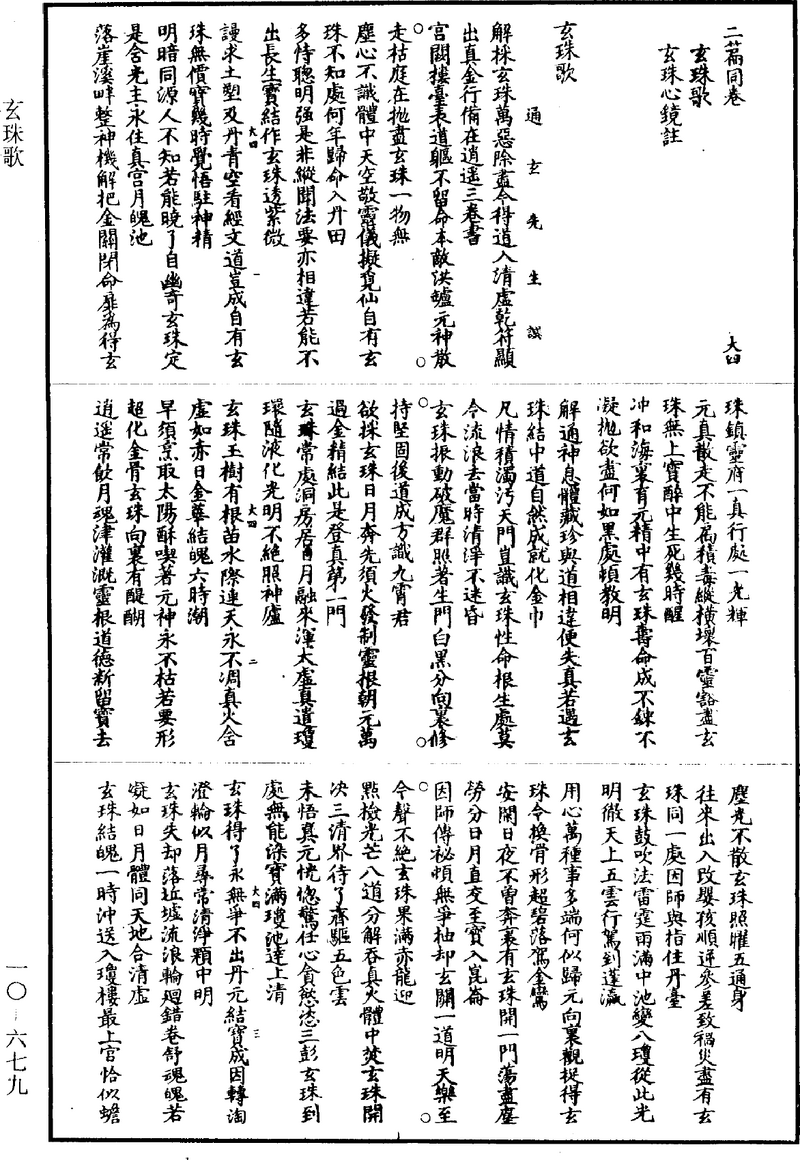 二篇同卷
玄珠歌
玄珠心鏡註
大四
玄珠歌
通玄先生譔
解採玄珠萬惡除盡令得道入清虛乾符顯
出真金行備在逍遥三卷書
宮闕樓臺表道軀不留命本敵洪爐元神散
走枯庭在抛盡玄珠一物無
塵心不識體中天空敬靈儀擬覓仙自有玄
珠不知處何年歸命入丹田
多恃聰明強是非縱聞法要亦相違若能不
出長生寶結作玄珠透紫微
謾求土塑及丹青空看經文道豈成自有玄
珠無價寶幾時覺悟駐神精
明暗同源人不知若能曉了自幽奇玄珠定
是含光主永住真宫月魄池
落崖溪畔整神機解把金關閉命扉為得玄
珠鎮靈府一真行處一光輝
元真散走不能為積毒縱橫壞百靈豁盡玄
珠無上寶醉中生死幾時醒
冲和海裏育元精中有玄珠壽命成不鍊不
凝抛欲盡何如黑處頓教明
解通神息體藏珍與道相違便失真若遇玄
珠結中道自然成就化金巾
凡情積濁污天門豈識玄珠性命根生處莫
令流浪去當時清淨不迷昏
玄珠振動破魔群照著生門白黑分向裏修
持堅固後道成方識九霄君
欲採玄珠日月奔先須火發制靈根朝元萬
過金精結此是登真第一門
玄珠常處洞房居日月融來渾太虛真遣瓊
環随液化光明不絕照神廬
玄珠玉樹有根苗水際連天永不凋真火含
虛如赤日金華結魄六時潮
早須烹取太陽酥喫著元神永不枯若要形
超化金骨玄珠向裏有醍醐
逍遥常飲月魂津灌溉靈根道德新留寶去
塵光不散玄珠照耀五通身
往来出入改嬰孩順逆參差致禍災盡有玄
珠同一處因師與指住丹臺
玄珠鼓吹法雷霆雨滿中池變八瓊從此光
明徹天上五雲行駕到蓬瀛
用心萬種事多端何似歸元向裏觀捉得玄
珠令換骨形超碧落駕金鸞
安閑日夜不曾奔裏有玄珠開一門蕩盡塵
勞分日月直交至寶入崑崙
因師傳祕頓無爭柚却玄關一道明天樂至
令聲不絕玄珠果滿赤龍迎
點檢光芒八道分解吞真火體中焚玄珠開
决三清界待了齊驅五色雲
未悟真元恍惚驚任心貪慾恣三彭玄珠到
處無能染寶滿瓊池達上清
玄珠得了永無爭不出丹元結寶成因轉淘
澄輪似月尋常清淨顆中明
玄珠失却落近墟流浪輪廻錯卷舒魂魄若
凝如日月體同天地合清虛
玄珠結魄一時沖送入瓊樓最上宫恰似蟾
大四
一
大四
二
大四
三
玄珠歌
一〇-六七九